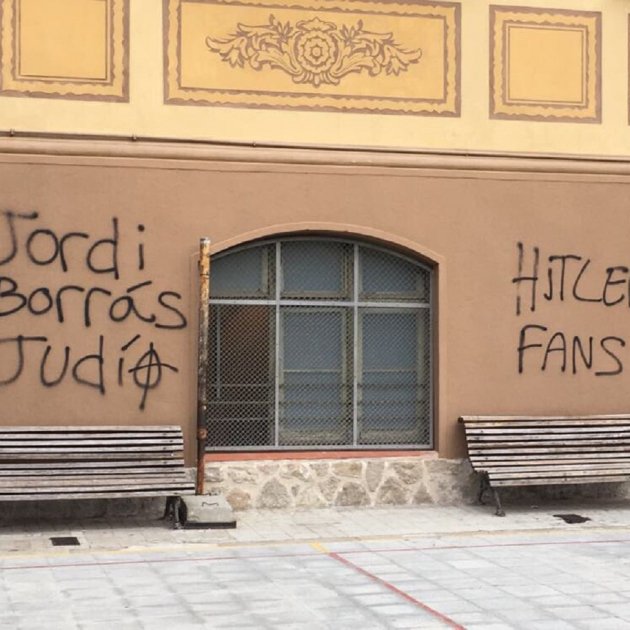 Jordi
Borrás
Judía
HITLER
FANS